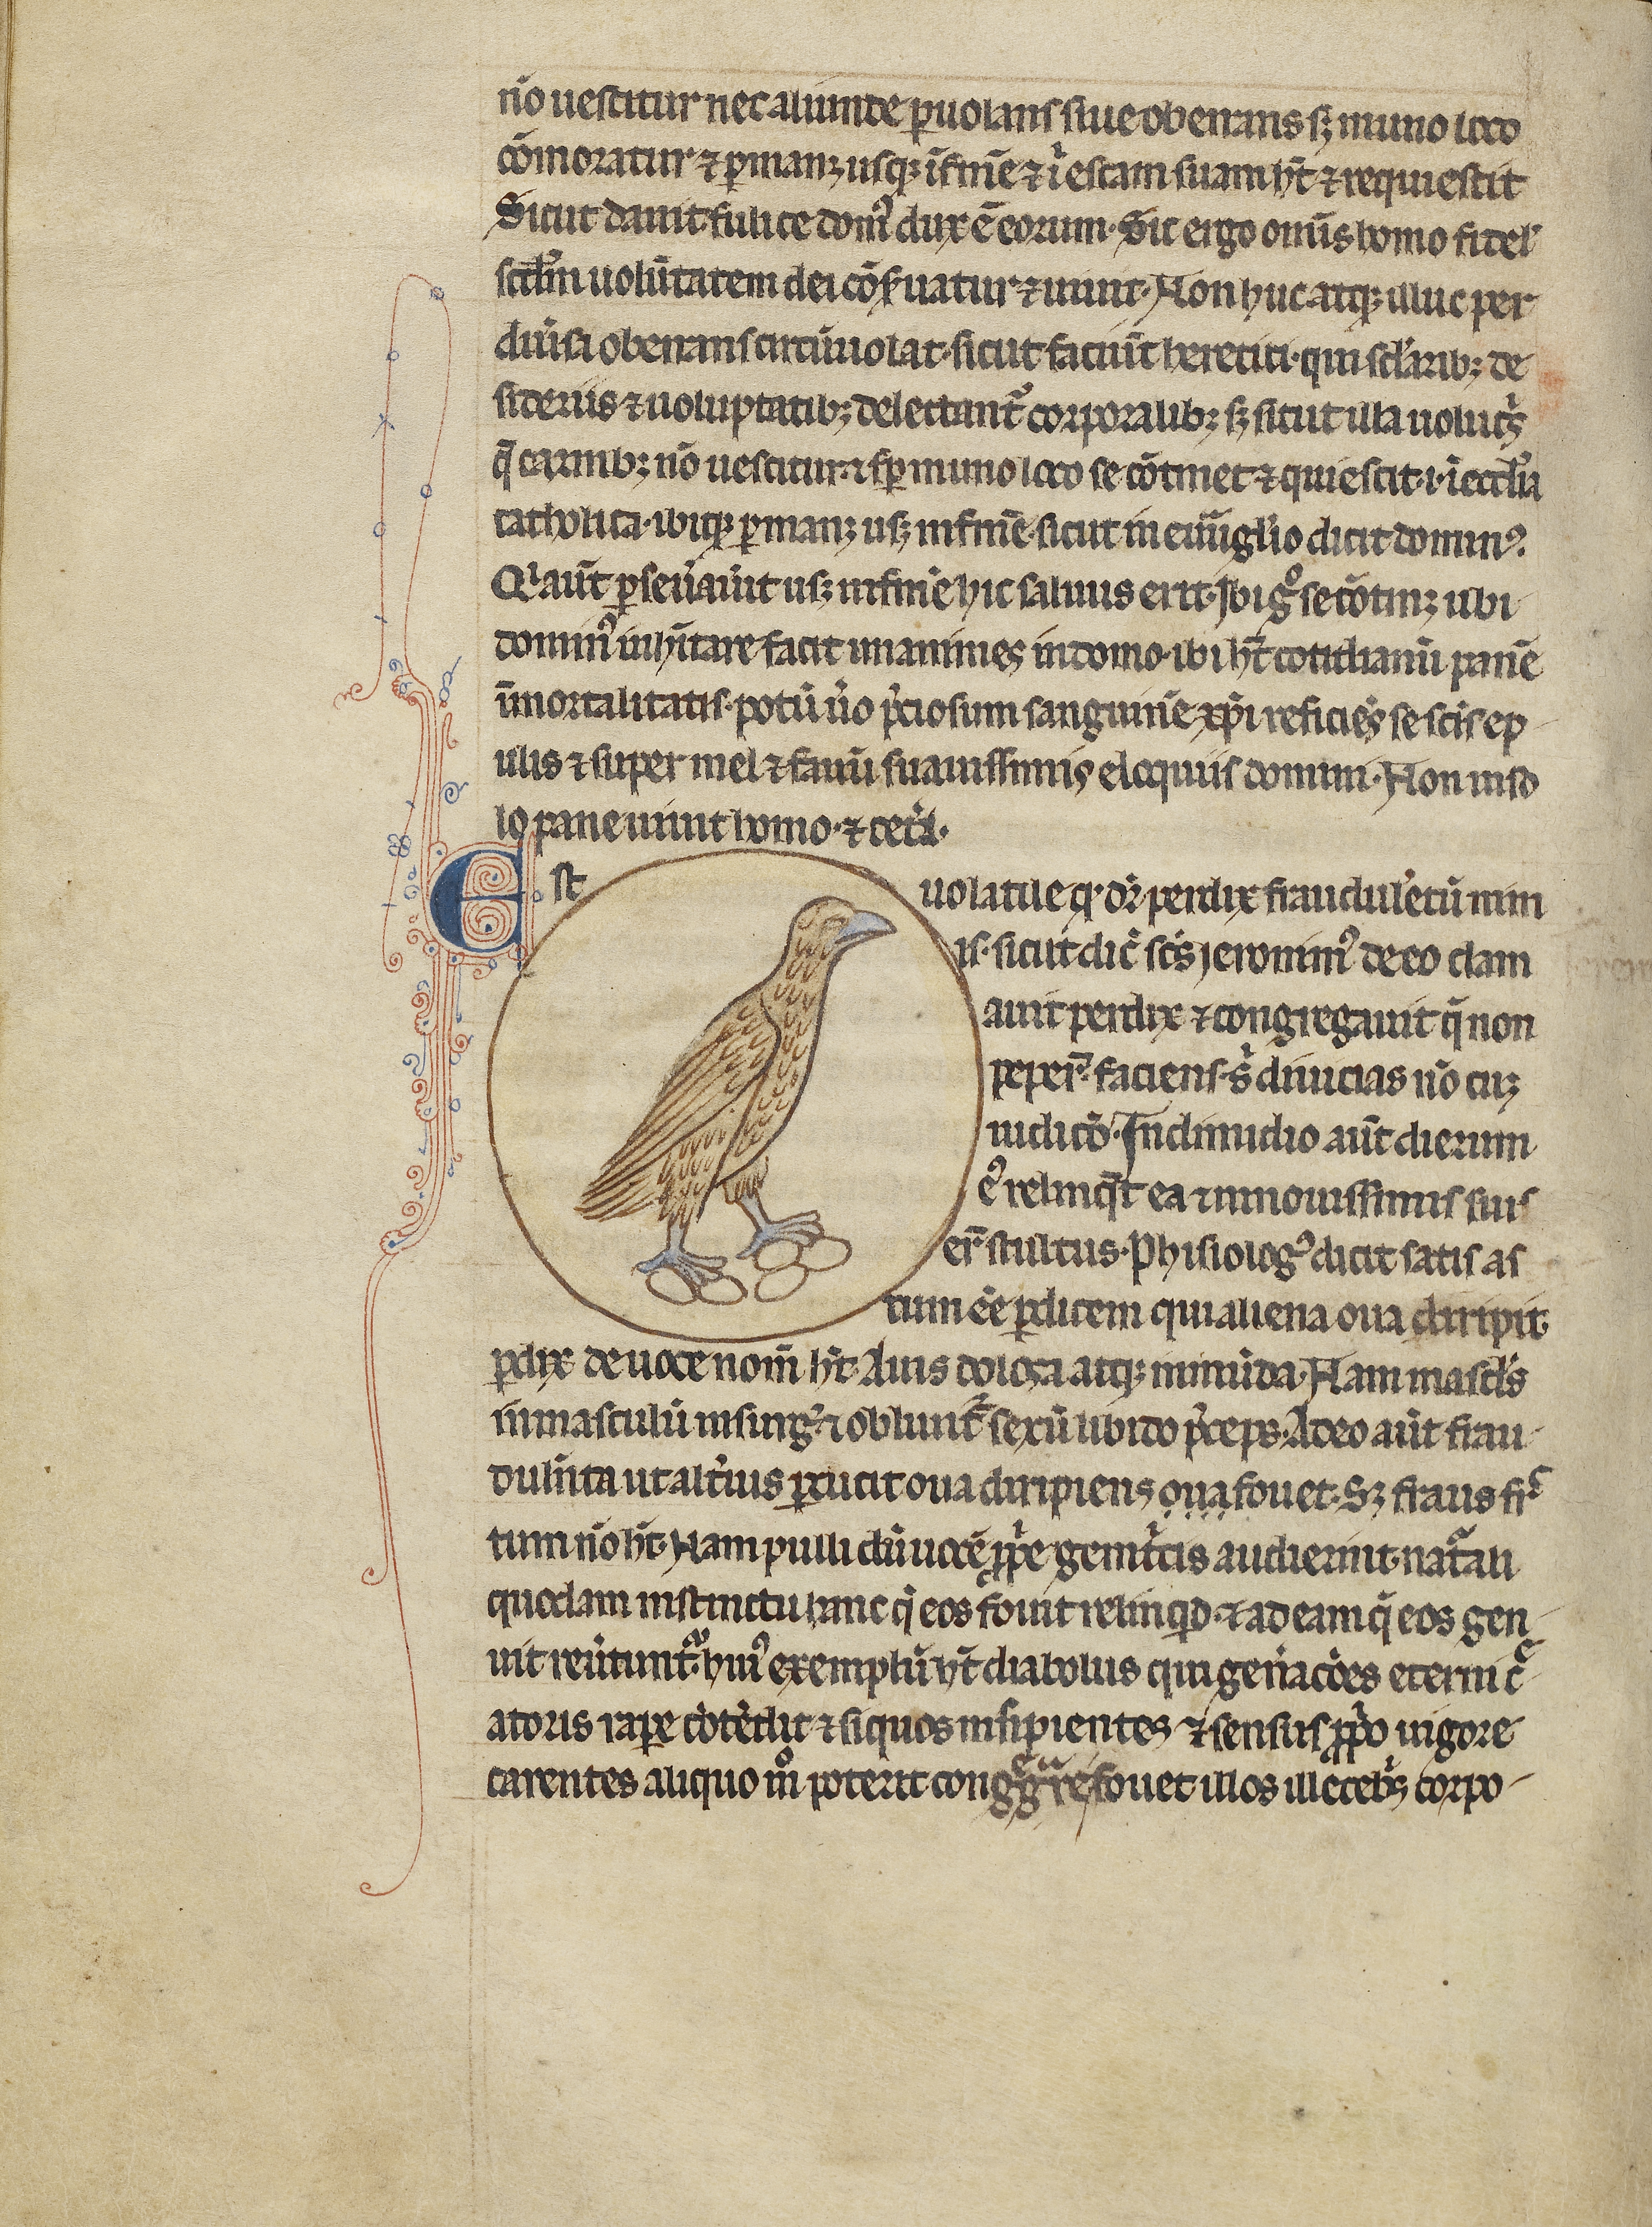 nō uescitur nec aliunde ꝑuolans siue oberrans sꝫ in uno loco
cōmoratur ⁊ ꝑmanꝫ usqꝫ ī finē ⁊ ı̄ escam suam hꝫ̄t ⁊ requiescit
Sicut dauit fulice domꝰ dux ē eorum. Sic ergo omīs homo fidel̓
scd̄m uolūtatem dei cōẜuatur ⁊ uiuit. Non huc atqꝫ illuc per
diūsa oberrans circūuolat. sicut faciūt heretici. qui scl̄arib; de
sideriis ⁊ uoluptatib; delectantᷣ corporalib; sꝫ sicut illa uolucͥs
q̄ carnib; nō uescitur. ⁊ sꝑ in uno loco se cōtinet ⁊ quiescit .i. ī eccl̄ia
catholica. ibiqꝫ ꝑmanꝫ usꝫ in finē. sicut in euu̅gl̄io dicit dominꝰ.
Qͥ aūt ꝑseūauīt usꝫ in finē hic saluus erit. Ibi gͦ se cōtinꝫ ubi
dominꝰ inhītare facit unanimes in domo. ibi hꝫ̄t cotidianū panē
īmortalitatis. potū ūo p̄ciosum sanguinē xp̄i reficiēs se scīs ep
ulis ⁊ super mel ⁊ fauū suauissimis eloquiis domini. Non in so
lo pane uiuit homo. ⁊ cetͣ.
Est
uolatile q. dr̄ perdix fraudul̄etū nim
is. sicut dic̄ scs̄ jeronimꝰ de eo clam
auit perdix ⁊ congregauit q̄ non
peper̄. faciens. sͥ diuicias nō cuꝫ
iudicō. In dimidio aūt dierum
eꝰ relinq̄t ea ⁊ in nouissimis suis
er̄ stultus. Phisiologꝰ dicit satis as
tum eē ꝑdicem qui aliena oua diripit.
ꝑdix de uoce nom̄ hꝫ̄t. Auis dolosa atqꝫ inmūda. Nam mascl̄s
in masculū insurgͥ. ⁊ obliuitᷣ sexū libido p̄ceps. Adeo aūt frau
dulīta ut alt̄ius ꝑducit oua diripiens oua fouet. Sꝫ fraus frͨ
tum nō hꝫ̄t. Nam pulli dū uocē ꝓpͥe genitͥcis audierint. natᷓali
quodam instinctu hanc q̄ eos fouit relinquō. ⁊ ad eam q̄ eos gen
uit reūtuntᷣ. huiꝰ exemplū hꝫ̄t diabolus qui gen̄acōes eterni cͤ
atoris raꝑe cōtēdit ⁊ si quos insipientes ⁊ sensus ꝓpͥo uigore
carentes aliquo mͦ poterit cong̅gͣre fouet illos illecebͥs corpo